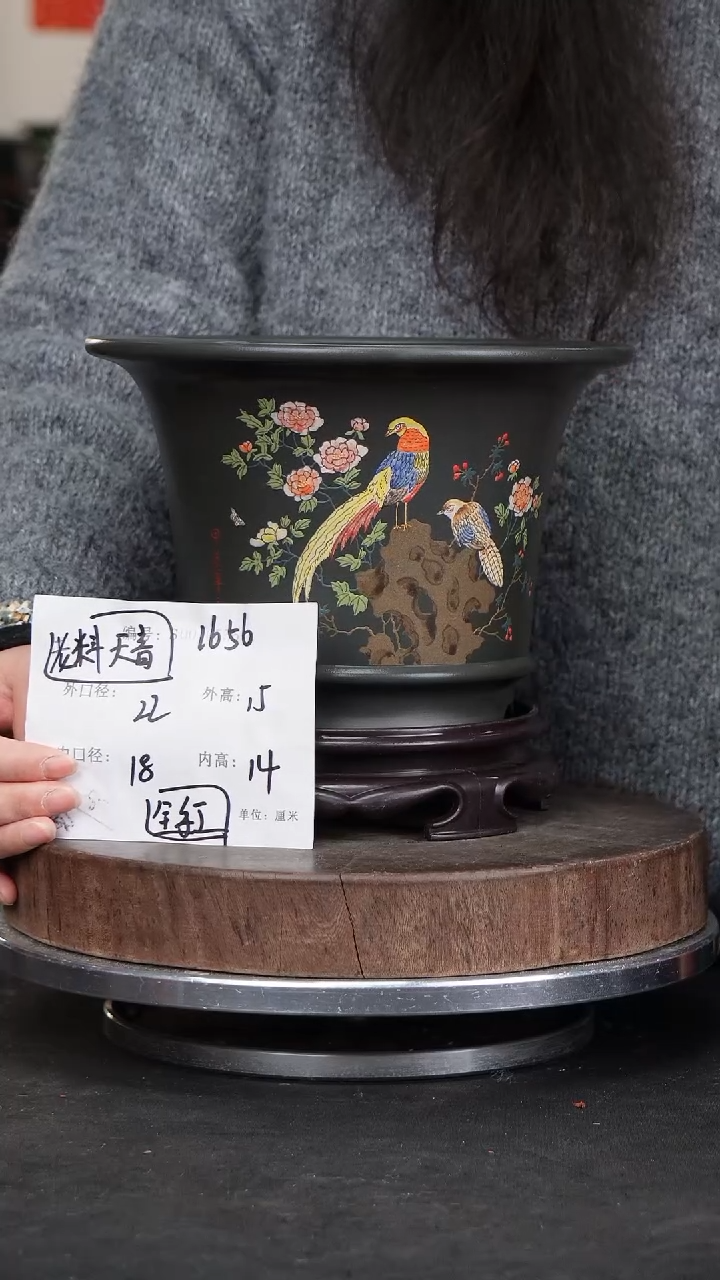 老料天青 编号: 1656
外口径: 22 外高: 15
内口径: 18 内高: 14
全手工 单位: 厘米